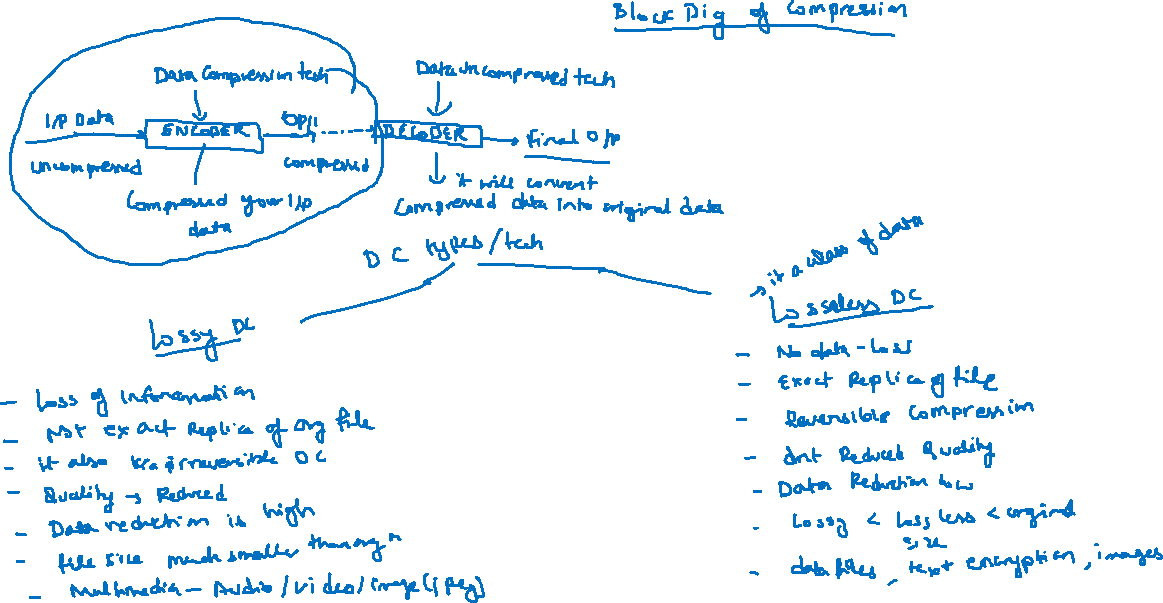 Block Dig of Compression
Data Compression tech
Data uncompressed tech
I/P Data
ENCODER
O/P
DECODER
Final O/P
uncompressed
compressed
Compressed your I/P
data
it will convert
Compressed data into original data
DC types/tech
it a class of data
Lossy DC
Lossless DC
- Loss of Information
- Not Exact Replica of org file
- it also irreversible DC
- Quality → Reduced
- Data reduction is high
- file size much smaller than orgn
- Multimedia - Audio/video/image(jpeg)
- No data-loss
- Exact Replica of file
- Reversible Compression
- dnt Reduces Quality
- Data Reduction low
- Lossy < lossless < orginal
size
- data files, text encryption, images